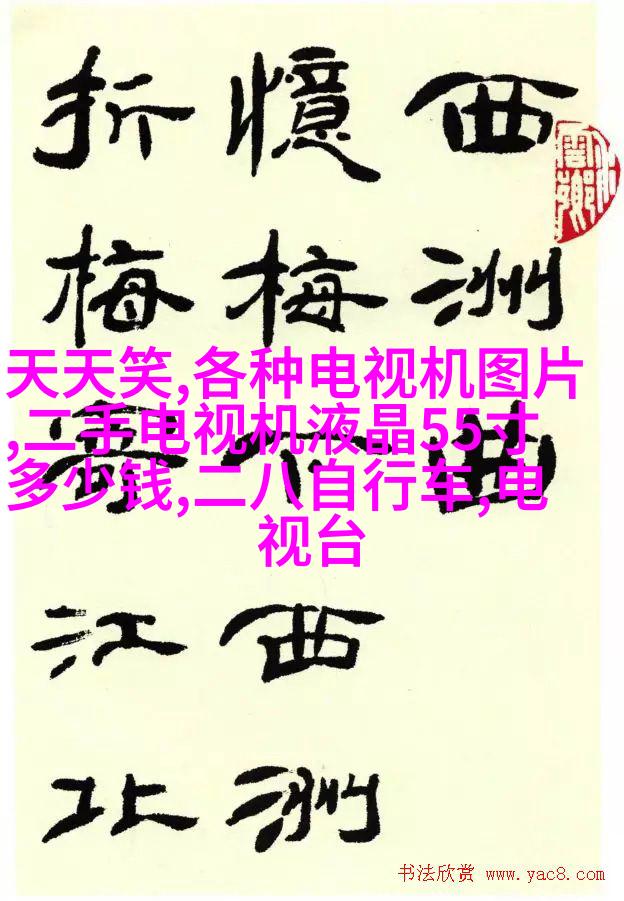 西洲曲
憶梅下西洲
折梅寄江北
天天笑,各种电视机图片
,二手电视机液晶55寸
多少钱,二八自行车,电
视台
书法欣赏 www.yac8.com